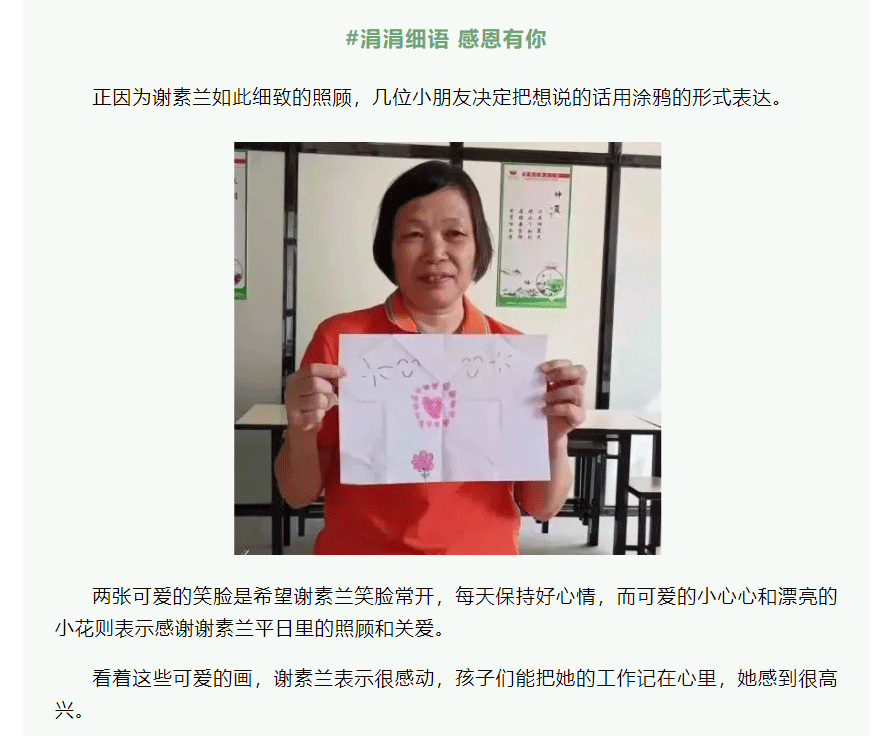 #涓涓细语 感恩有你
正因为谢素兰如此细致的照顾，几位小朋友决定把想说的话用涂鸦的形式表达。
仲夏
两张可爱的笑脸是希望谢素兰笑脸常开，每天保持好心情，而可爱的小心心和漂亮的
小花则表示感谢谢素兰平日里的照顾和关爱。
看着这些可爱的画，谢素兰表示很感动，孩子们能把她的工作记在心里，她感到很高
兴。